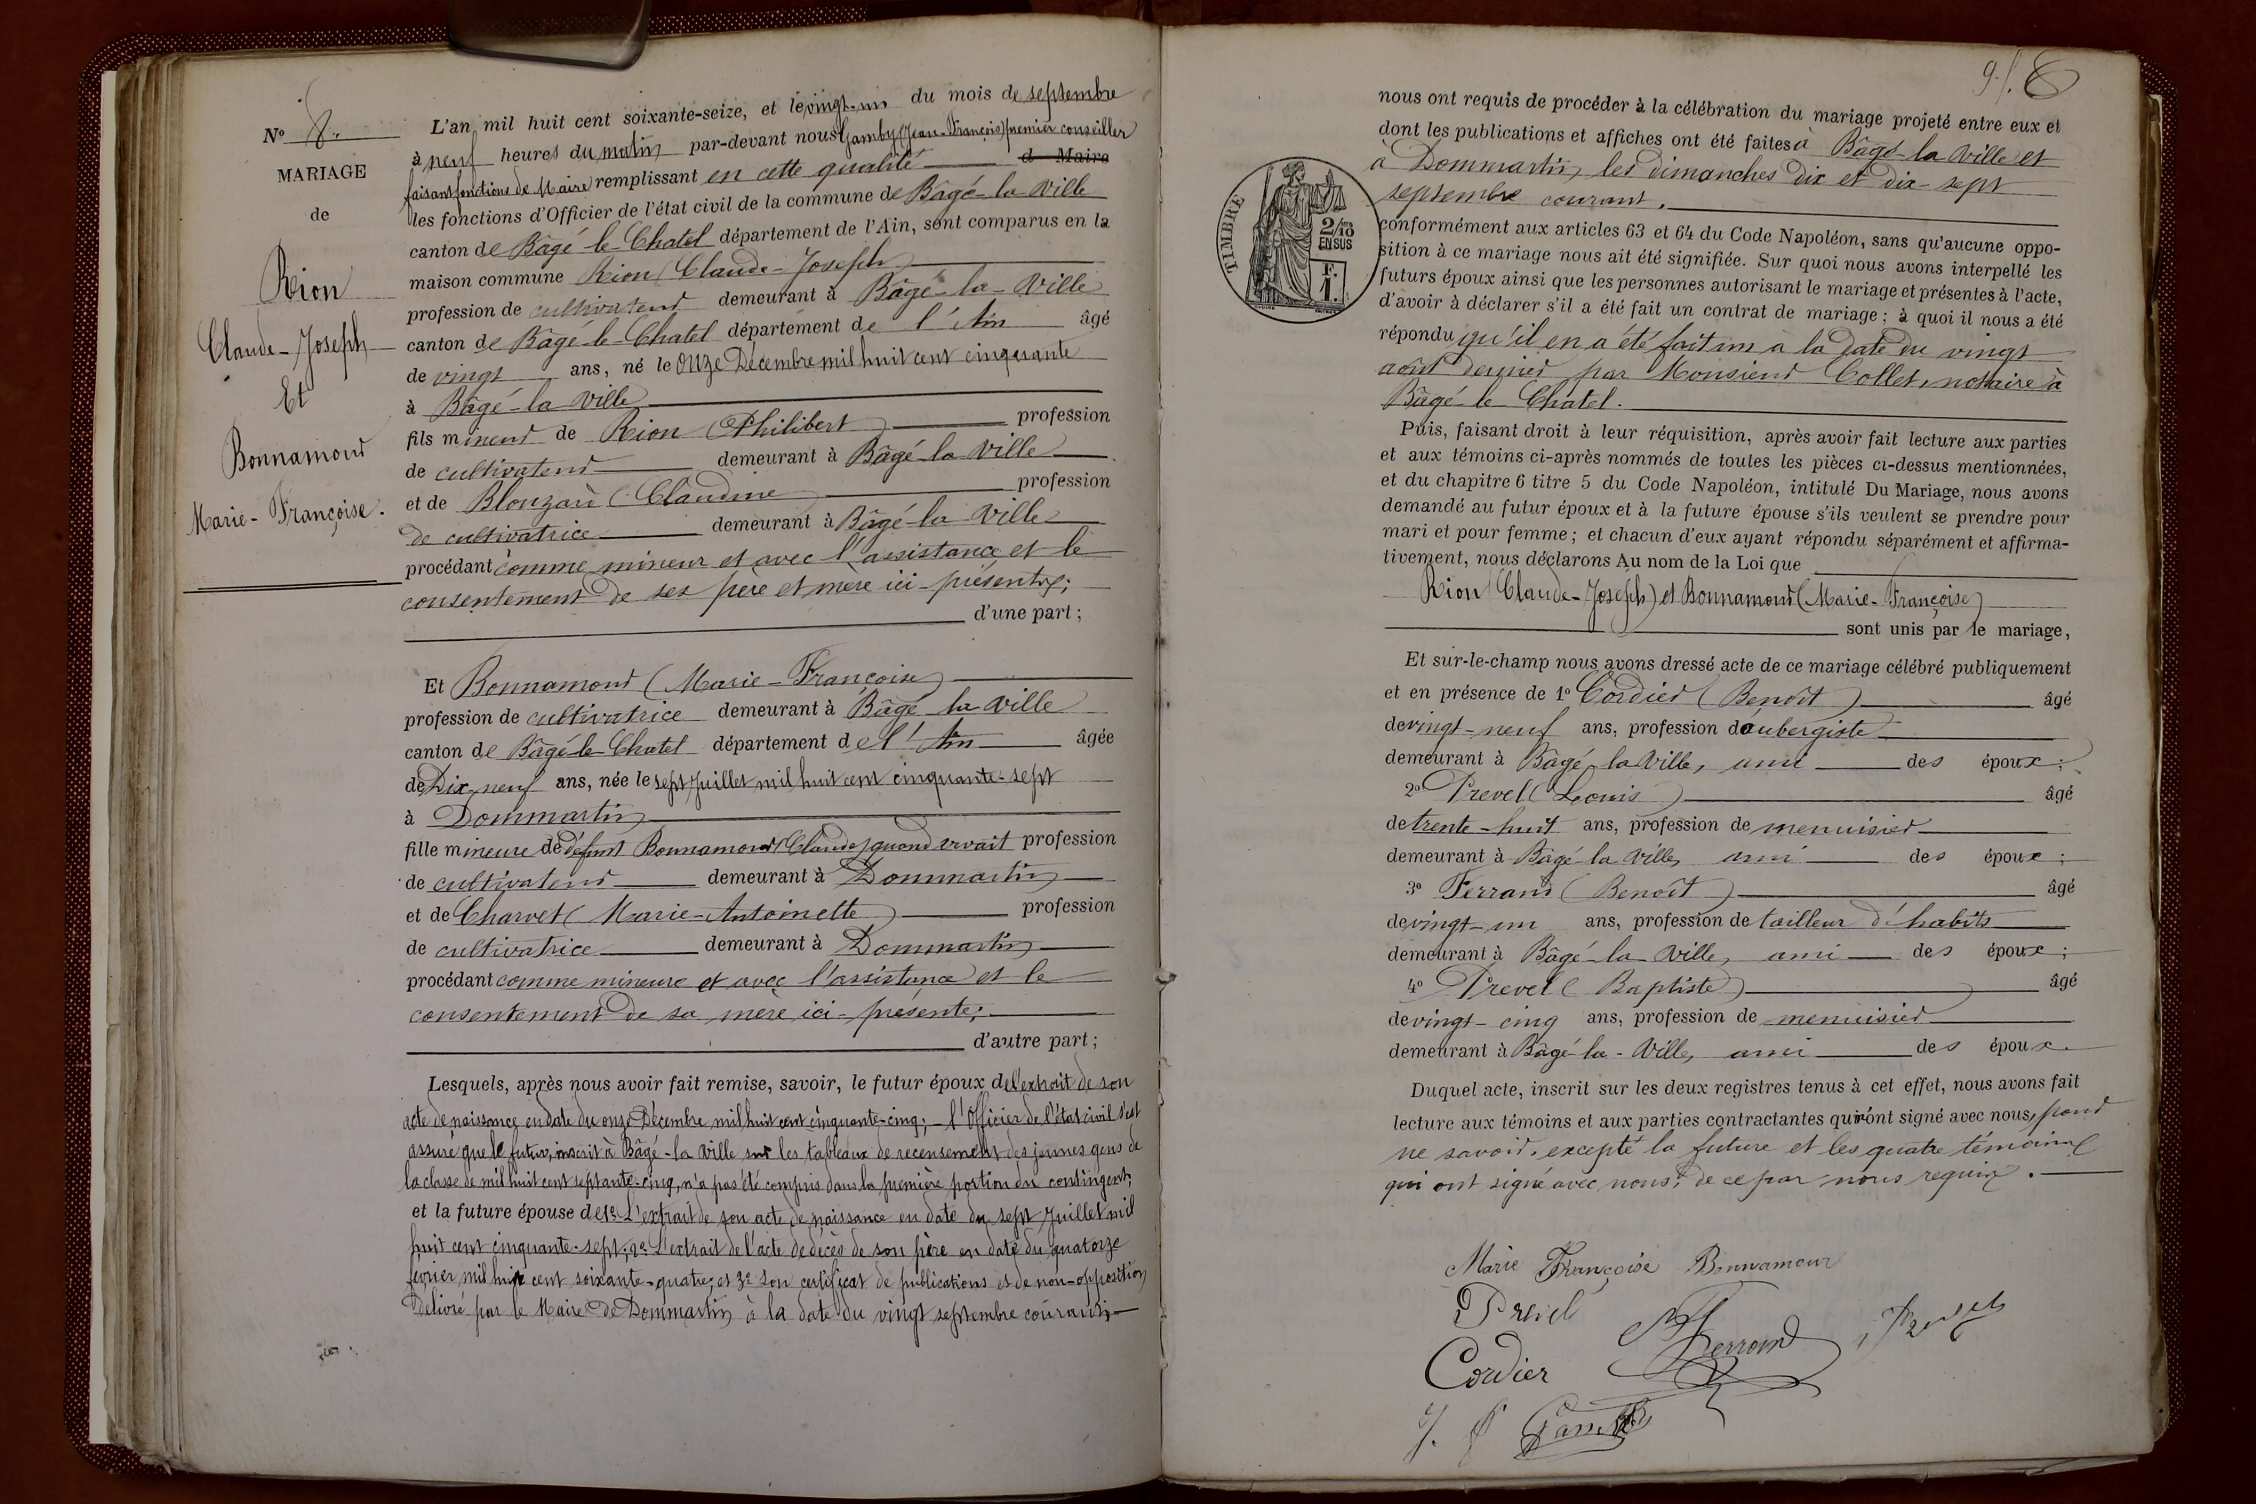 N° 8.
MARIAGE
de
Rion
Claude-Joseph
Et
Bonnamour
Marie-Françoise.
L'an mil huit cent soixante-seize, et le vingt-un du mois de septembre
à neuf heures du matin par-devant nous Gamby (Jean-François) premier conseiller
faisant fonctions de Maire remplissant en cette qualité d Maire
les fonctions d'Officier de l'état civil de la commune de Bâgé-la-Ville
canton de Bâgé-le-Chatel département de l'Ain, sont comparus en la
maison commune Rion (Claude-Joseph)
profession de cultivateur demeurant à Bâgé-la-Ville
canton de Bâgé-le-Chatel département de l'Ain âgé
de vingt ans, né le onze Décembre mil huit cent cinquante
à Bâgé-la-Ville
fils mineur de Rion (Philibert) profession
de cultivateur demeurant à Bâgé-la-Ville
et de (Claudine) profession
de cultivatrice demeurant à Bâgé-la-Ville
procédant comme mineur et avec l'assistance et le
consentement de ses père et mère ici-présents;
d'une part;
Et Bonnamour (Marie-Françoise)
profession de cultivatrice demeurant à Bâgé-la-Ville
canton de Bâgé-le-Chatel département de l'Ain âgée
de Dix-neuf ans, née le sept Juillet mil huit cent cinquante-sept
à Dommartin
fille mineure de défunt Bonnamour (Claude) quand vivait profession
de cultivateur demeurant à Dommartin
et de Charvet (Marie-Antoinette) profession
de cultivatrice demeurant à Dommartin
procédant comme mineure et avec l'assistance et le
consentement de sa mère ici-présente;
d'autre part;
Lesquels, après nous avoir fait remise, savoir, le futur époux de l'extrait de son
acte de naissance en date du onze Décembre mil huit cent cinquante-cinq; - l'Officier de l'état civil s'est
assuré que le futur, inscrit à Bâgé-la-Ville sur les tableaux de recensement des jeunes gens de
la classe de mil huit cent septante-cinq, n'a pas été compris dans la première portion du contingent;
et la future épouse de 1° L'extrait de son acte de naissance en date du sept Juillet mil
huit cent cinquante-sept; 2° L'extrait de l'acte de décès de son père en date du quatorze
février mil huit cent soixante-quatre; et 3° Son certificat de publications et de non-opposition
délivré par le Maire de Dommartin à la date du vingt septembre courant;
9/. 8
TIMBRE
2/10
EN SUS
F.
1.
nous ont requis de procéder à la célébration du mariage projeté entre eux et
dont les publications et affiches ont été faites à Bâgé-la-Ville et
à Dommartin, les dimanches dix et dix-sept
septembre courant.
conformément aux articles 63 et 64 du Code Napoléon, sans qu'aucune oppo-
sition à ce mariage nous ait été signifiée. Sur quoi nous avons interpellé les
futurs époux ainsi que les personnes autorisant le mariage et présentes à l'acte,
d'avoir à déclarer s'il a été fait un contrat de mariage; à quoi il nous a été
répondu qu'il en a été fait un à la date du vingt
août dernier par Monsieur Collet, notaire à
Bâgé-le-Châtel.
Puis, faisant droit à leur réquisition, après avoir fait lecture aux parties
et aux témoins ci-après nommés de toutes les pièces ci-dessus mentionnées,
et du chapitre 6 titre 5 du Code Napoléon, intitulé Du Mariage, nous avons
demandé au futur époux et à la future épouse s'ils veulent se prendre pour
mari et pour femme; et chacun d'eux ayant répondu séparément et affirma-
tivement, nous déclarons Au nom de la Loi que
Rion (Claude-Joseph) et Bonnamour (Marie-Françoise)
sont unis par le mariage,
Et sur-le-champ nous avons dressé acte de ce mariage célébré publiquement
et en présence de 1° Cordier (Benoît) âgé
de vingt-neuf ans, profession d'aubergiste
demeurant à Bâgé-la-Ville, ami des époux;
2° Prevel (Louis) âgé
de trente-huit ans, profession de menuisier
demeurant à Bâgé-la-Ville, ami des époux;
3° Ferrand (Benoît) âgé
de vingt-un ans, profession de tailleur d'habits
demeurant à Bâgé-la-Ville, ami des époux;
4° Prevel (Baptiste) âgé
de vingt-cinq ans, profession de menuisier
demeurant à Bâgé-la-Ville, ami des époux.
Duquel acte, inscrit sur les deux registres tenus à cet effet, nous avons fait
lecture aux témoins et aux parties contractantes qui n'ont signé avec nous, pour
ne savoir, excepté la future et les quatre témoins
qui ont signé avec nous, de ce par nous requis.
Marie Françoise Bonnamour
Prevel
Ferrand
Prevel
Cordier
J. f Gamby